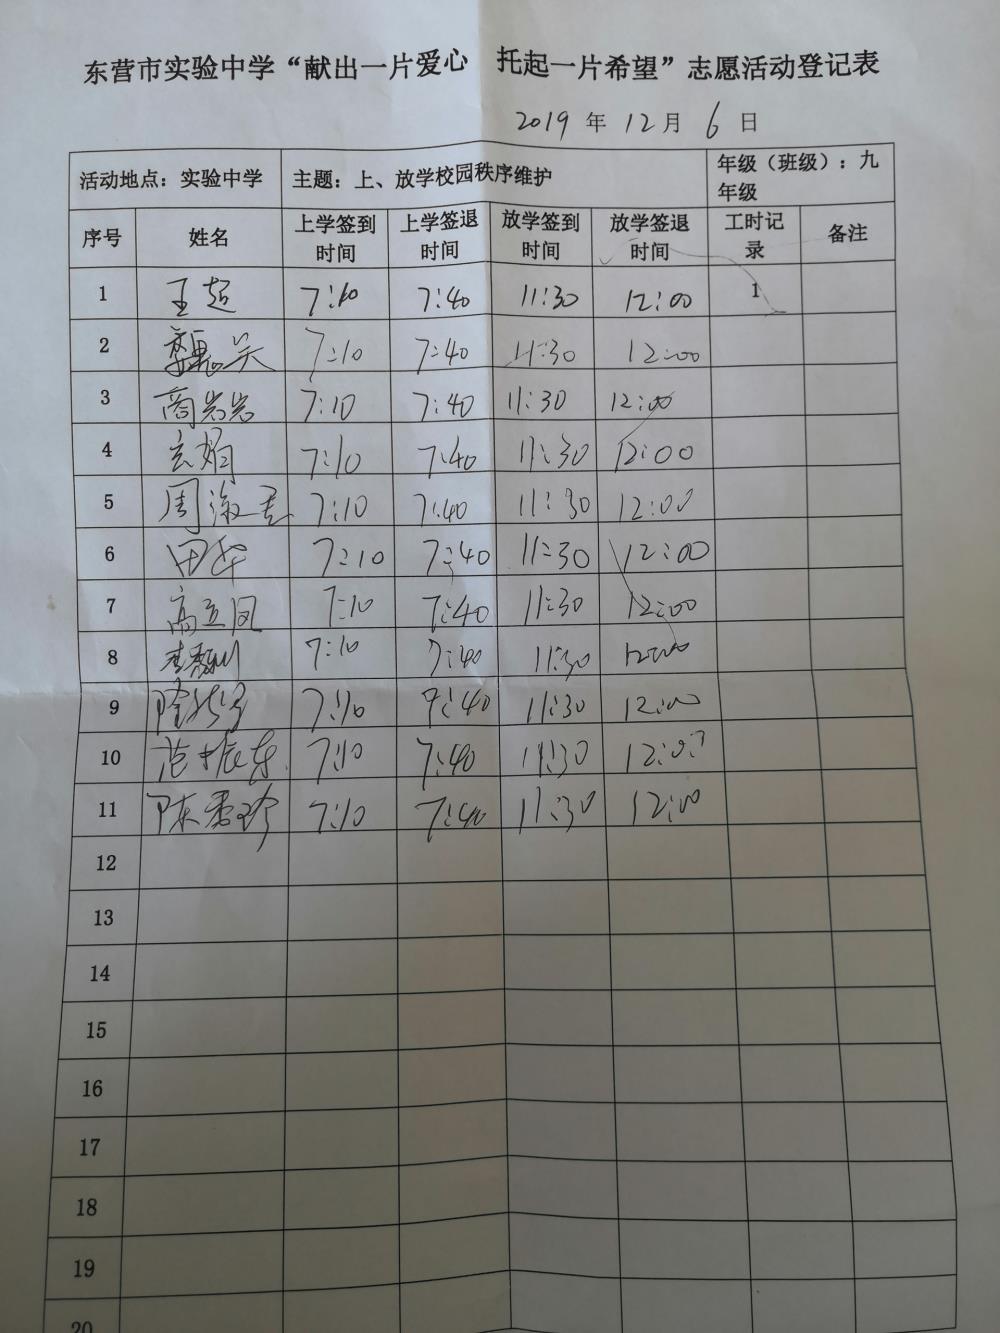 东营市实验中学“献出一片爱心 托起一片希望”志愿活动登记表
2019 年 12 月 6 日
活动地点：实验中学 主题：上、放学校园秩序维护 年级（班级）：九年级
序号 姓名 上学签到时间 上学签退时间 放学签到时间 放学签退时间 工时记录 备注
1 王超 7:10 7:40 11:30 12:00 1
2 7:10 7:40 11:30 12:00
3 商岩岩 7:10 7:40 11:30 12:00
4 玄娟 7:10 7:40 11:30 12:00
5 周 7:10 7:40 11:30 12:00
6 田华 7:10 7:40 11:30 12:00
7 高立凤 7:10 7:40 11:30 12:00
8 7:10 7:40 11:30 12:00
9 7:10 7:40 11:30 12:00
10 范振东 7:10 7:40 11:30 12:00
11 陈秀珍 7:10 7:40 11:30 12:00
12
13
14
15
16
17
18
19
20